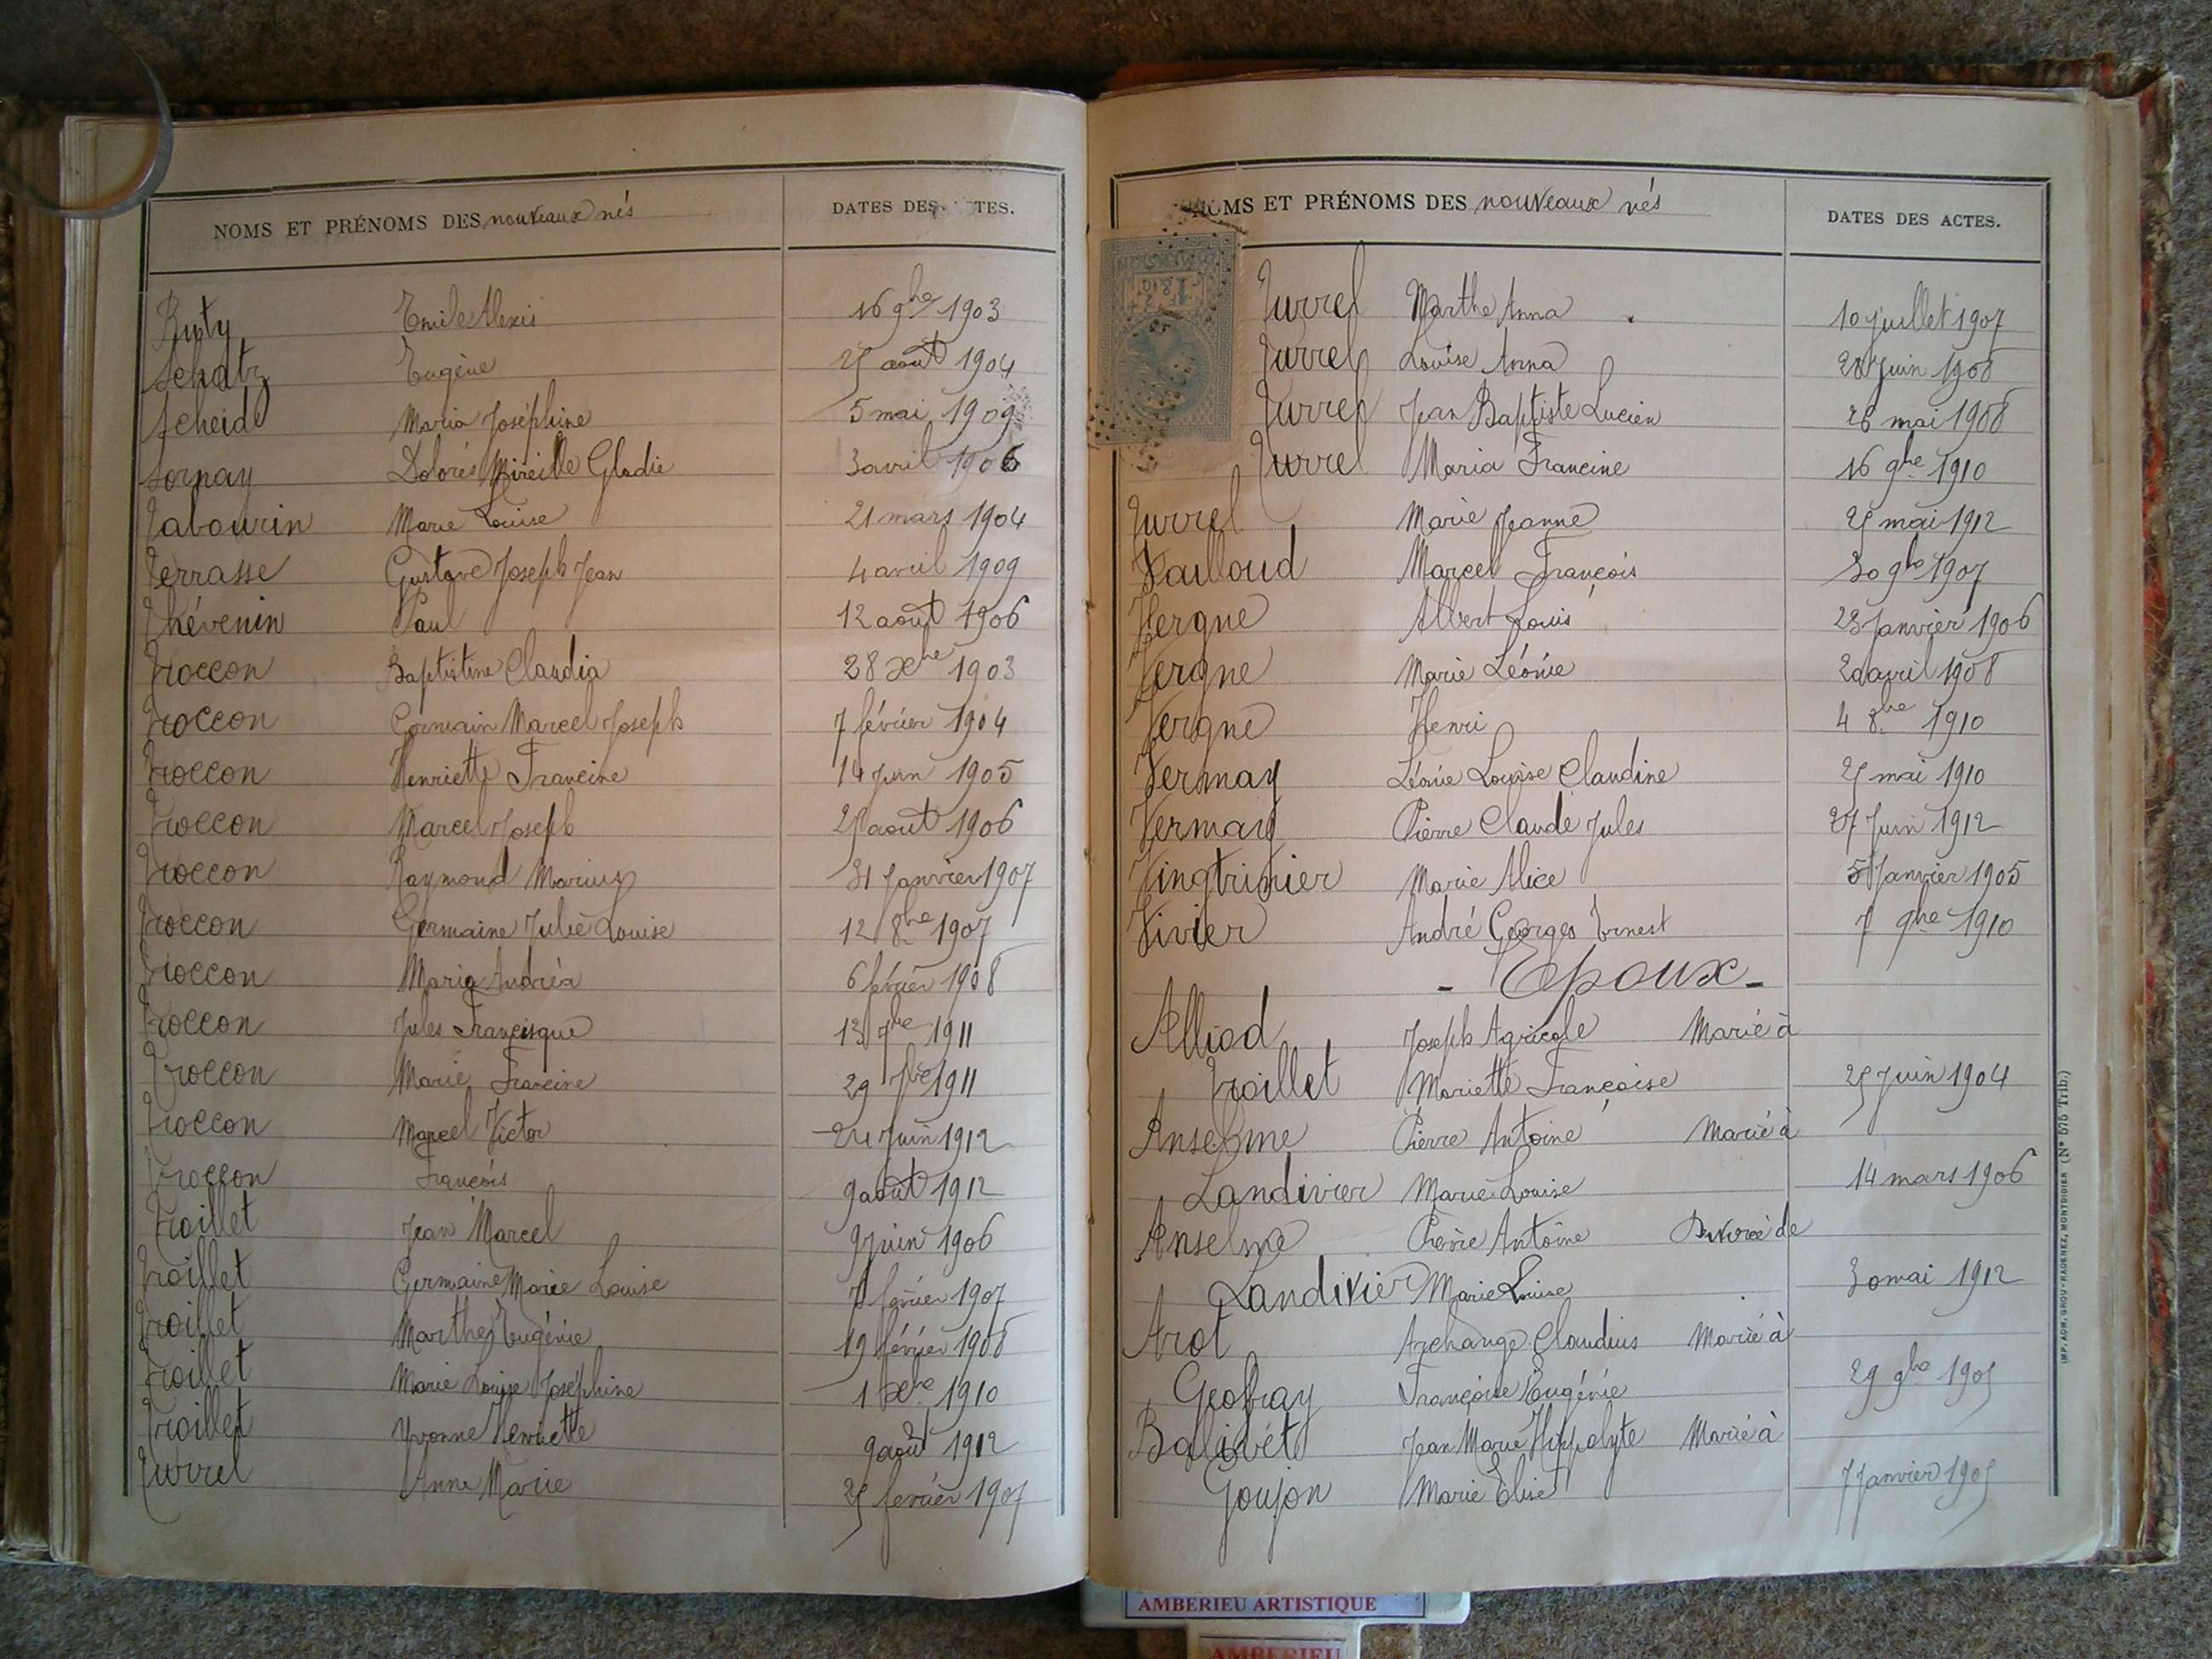 NOMS ET PRÉNOMS DES nouveaux nés DATES DES TES.
Ruty Emile Alexis 16 9bre 1903
Schatz Eugène 25 août 1904
Scheid Maria Joséphine 5 mai 1909
Sornay Dolorés Mireille Gladie 3 avril 1906
Tabourin Marie Louise 21 mars 1904
Terrasse Gustave Joseph Jean 4 avril 1909
Thévenin Paul 12 août 1906
Troccon Baptistine Claudia 28 xbre 1903
Troccon Germain Marcel Joseph 7 février 1904
Troccon Henriette Francine 14 Juin 1905
Troccon Marcel Joseph 25 août 1906
Troccon Raymond Marius 31 Janvier 1907
Troccon Germaine Julie Louise 12 8bre 1907
Troccon Maria Andréa 6 février 1908
Troccon Jules Francisque 13 7bre 1911
Troccon Marie Francine 29 7bre 1911
Troccon Marcel Victor 24 Juin 1912
Troccon François 9 août 1912
Troillet Jean Marcel 9 Juin 1906
Troillet Germaine Marie Louise 7 février 1907
Troillet Marthe Eugénie 19 février 1908
Troillet Marie Louise Joséphine 1 xbre 1910
Troillet Yvonne Henriette 9 août 1912
Turrel Anne Marie 25 février 1907
NOMS ET PRÉNOMS DES nouveaux nés DATES DES ACTES.
Turrel Marthe Anna 10 Juillet 1907
Turrel Louise Anna 28 Juin 1908
Turrel Jean Baptiste Lucien 26 mai 1908
Turrel Maria Francine 16 9bre 1910
Turrel Marie Jeanne 25 mai 1912
Vailloud Marcel François 30 9bre 1907
Vergne Albert Louis 23 Janvier 1906
Vergne Marie Léonie avril 1908
Vergne Henri 4 8bre 1910
Vermay Léonie Louise Claudine 25 mai 1910
Vermay Pierre Claude Jules 27 Juin 1912
Vingtrinier Marie Alice 5 Janvier 1905
Vivier André Georges Ernest 7 9bre 1910
- Epoux -
Alliod Joseph Agricole Marié à
Troillet Mariette Françoise 25 Juin 1904
Anselme Pierre Antoine Marié à
Landivier Marie Louise 14 mars 1906
Anselme Pierre Antoine Divorcé de
Landivier Marie Louise 30 mai 1912
Arot Archange Claudius Marié à
Geoffray Françoise Eugénie 29 9bre 1905
Balivet Jean Marie Hippolyte Marié à
Goujon Marie Elise 7 Janvier 1905
IMP. ADM. GROU-RADENEZ, MONTDIDIER (N° 575 Trib.)
AMBERIEU ARTISTIQUE
AMBERIEU